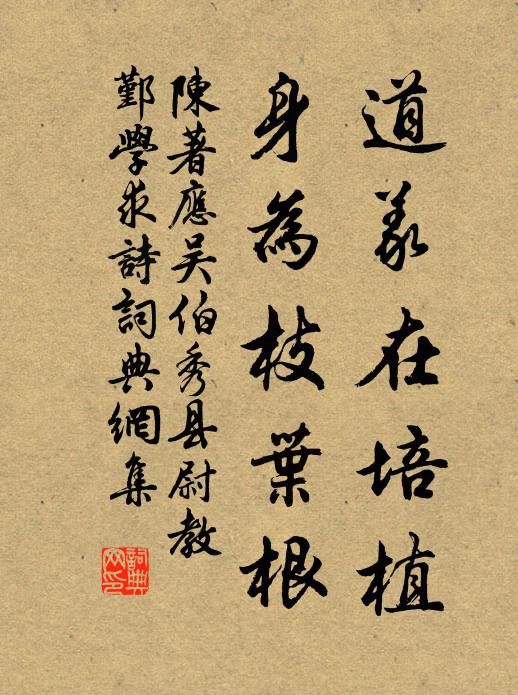 道義在培植
身為枝葉根
陳著應吴伯秀县尉教
鄞學求詩詞典網集
詞典网印